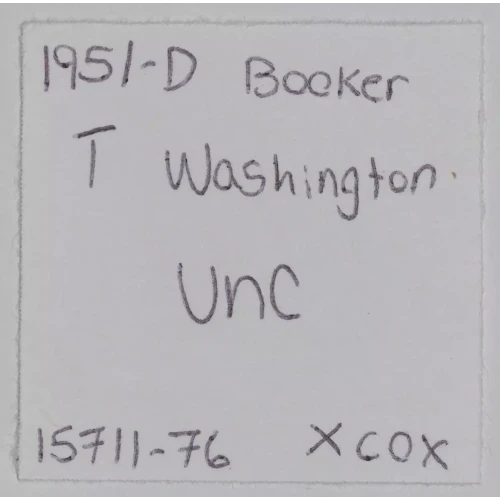 1951-D Booker
T Washington
Unc
15711-76 XCOX